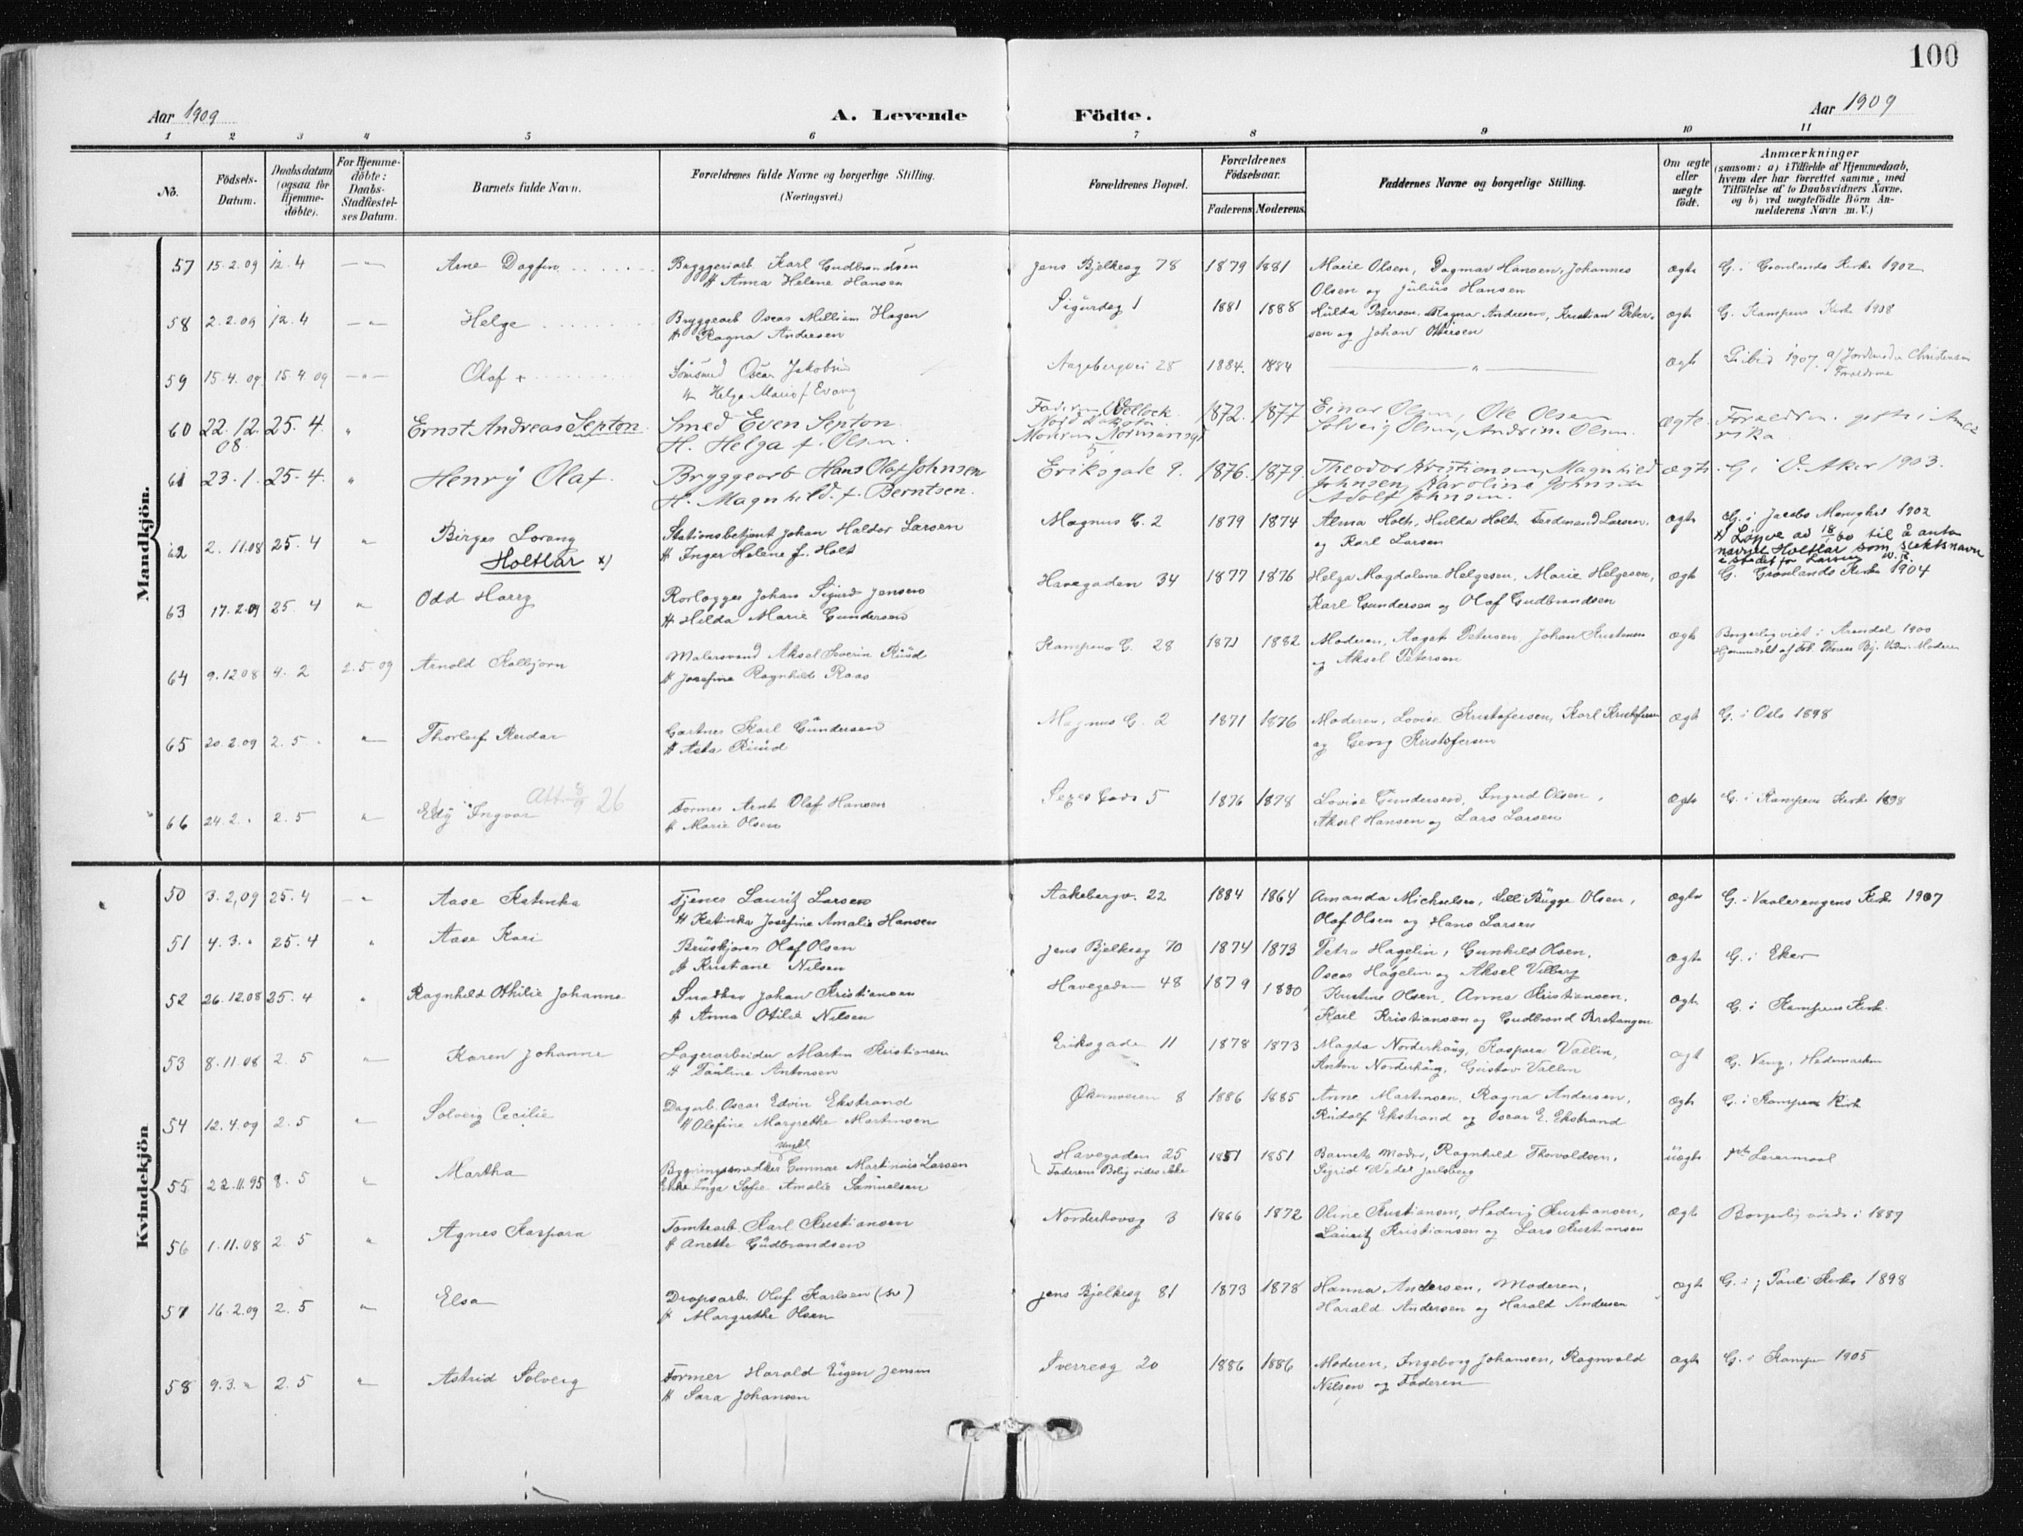 100
Aar 1909 A. Levende Födte. Aar 1909
1 2 3 4 5 6 7 8 9 10 11
No. Födsels-Datum. Daabsdatum (ogsaa for Hjemme-döbte). For Hjemme-döbte: Daabs-Stadfæstel-ses Datum. Barnets fulde Navn. Forældrenes fulde Navne og borgerlige Stilling. (Næringsvei.) Forældrenes Bopæl. Forældrenes Födselsaar. Faderens Moderens. Faddernes Navne og borgerlige Stilling. Om ægte eller uægte födt. Anmærkninger (saasom: a) i Tilfælde af Hjemmedaab, hvem der har forrettet samme, med Tilföielse af to Daabsvidners Navne, og b) ved uægtefödte Börn An-melderens Navn m. V.)
Mandkjön.
57 15.2.09 12.4 Arne Dagfin Bryggeriarb Karl Gudbrandsen Jens Bjelkesg 78 1879 1881 Marie Olsen, Dagmar Hansen, Johannes ægte G. i Grønlands Kirke 1902
H Anna Helene Hansen Olsen og Julius Hansen
58 2.2.09 12.4 Helge Bryggearb Oscar William Hagen Sigurdsg 1 1881 1888 Hulda Petersen, Ragna Andresen, Kristian Peter- ægte G. Kampens Kirke 1908
H Ragna Andresen sen og Johan
59 15.4.09 15.4.09 Olaf + Oscar Jakobsen Aagebergvei 28 1884. 1884 ægt 1907. Jordmoder Christensen
H Helga Marie f Evang Forældrene
60 22.12.08 25.4. Ernst Andreas Septon. Smed Even Septon Faderen 1872. 1877 Einar Olsen, Ole Olsen ægte. Forældren. gifte i Ame
H. Helga f. Olsen. Nord Dakota Solveig Olsen, Andrine Olsen. rika
Moderen Normansg 5
61 23.1. 25.4. Henry Olaf. Bryggearb Hans Olaf Johnsen Eriksgade 9. 1876. 1879 Theodor Kristiansen, Magnhild ægte. G. i V. Aker 1903.
H. Magnhild f. Berntsen. Johnsen, Karoline Johnsen
Adolf Johnsen.
62 2.11.08 25.4 Birger Lorang Stationsbetjent Johan Haldor Larsen Magnus G. 2 1879 1874 Alma Holt, Hulda Holt Ferdinand Larsen, ægte G. i Jacobs Menighet 1902
Holtlar x) H Inger Helene f. Holt og Karl Larsen x) Løyve av 18/1 60 til å anta
navnet Holtlar som slektsnavn
i stedet for Larsen
63 17.2.09 25.4 Odd Harry Rørlægger Johan Sigurd Jensen Havegaden 34 1877 1876 Helga Magdalene Helgesen, Marie Helgesen, ægt G. Grønlands Kirke 1904
H Hilda Marie Gundersen Karl Gundersen og Olaf Gudbrandsen
64 9.12 08 4.2 2.5 09 Arnold Kolbjørn Malersvend Aksel Severin Ruud Kampens G. 28 1871 1882 Moderen, Aagot Petersen, Johan Kristensen ægt Borgerlig viet i Arendal 1900
H Josefine Ragnhild Raas og Aksel Petersen Moderen
65 20.2.09 2.5 Thorleif Reidar Gartner Karl Gundersen Magnus G. 2 1871 1876 Moderen, Lovise Kristofersen, Karl Kristofersen ægt G. i Oslo 1898
H Asta Ruud og Georg Kristofersen
66 24.2. 2.5 Edy Ingvar 26 Former Arnt Olaf Hansen 5 1876 1878 Lovise Gundersen, Ingrid Olsen, ægte G. i Kampens Kirke 1898
H Marie Olsen Aksel Hansen og Lars Larsen
Kvindekjön
50 3.2.09 25.4 Aase Katinka Tjener Lauritz Larsen Aakebergv. 22 1884 1864 Amanda Michelsen, Lill Bugge Olsen, ægte G. i Vaalerengens Kirke 1907
H Katinka Josefine Amalie Hansen Olaf Olsen og Hans Larsen
51 4.3. 25.4 Aase Kari Bruskjører Olaf Olsen Jens Bjelkesg 70 1874 1873 Petra Hagelin, Gunhild Olsen, ægt G. i Eker
H Kristiane Nilsen Oscar Hagelin og Aksel Vilberg
52 26.12.08 25.4 Ragnhild Othilie Johanne Johan Kristiansen Havegaden 48 1879 1880 Kristine Olsen, Anna Kristiansen, ægte G. i Kampens Kirke
H Anna Otilie Nilsen Karl Kristiansen og Gudbrand
53 8.11.08 2.5 Karen Johanne Lagerarbeider Martin Kristiansen Eriksgaden 11 1878 1873 Magda Norderhaug, Kaspara Vallin, ægt G. Vang, Hedemarken
H Pauline Antonsen Anton Norderhaug, Gustav Vallin
54 12.4.09 2.5 Solveig Cecilie Dagarb. Oscar Edvin Ekstrand Økernveien 8 1886 1885 Anne Martinsen, Ragna Andersen, ægte G. i Kampen Kirk
H Olefine Margrethe Martinsen Rudolf Ekstrand og Oscar E. Ekstrand
55 22.11.95 8.5 Martha Bygningssnedker Gunnar Martinius Larsen Havegaden 25 1851 1851 Barnets Moder, Ragnhild Thorvaldsen, uægte
Inga Sofie Amalie Samuelsen Faderens Bolig vides ikke Sigrid Wedel Jarlsberg
56 1.11.08 2.5 Agnes Kaspara Tomtearb Karl Kristiansen Norderhovsg 3 1866 1872 Oline Kristiansen, Hedvig Kristiansen, ægte Borgerlig viede i 1889
H Anette Gudbrandsen Lauritz Kristiansen og Lars Kristiansen
57 16.2.09 2.5 Elsa Dropsarb. Olaf Karlsen Jens Bjelkesg 81 1873 1878 Hanna Andersen, Moderen, ægte G. i Pauli Kirke 1898
H Margrethe Olsen Harald Andersen og Harald Andersen
58 9.3. 2.5 Astrid Solveig Former Harald Eugen Jensen Sverresg 20 1886 1886 Moderen, Ingeborg Johansen, Ragnvald ægte G. i Kampen 1905
H Sara Johansen Nilsen og Faderen